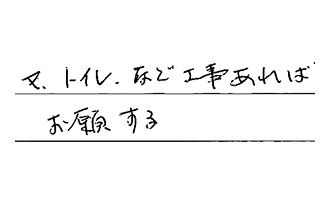 又、トイレ、など工事あれば
お願する